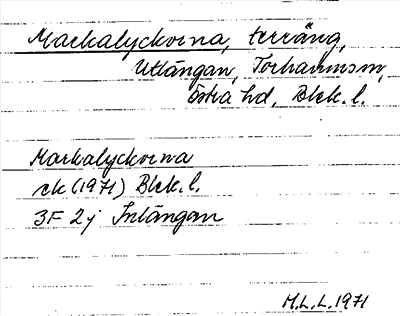 Markalyckorna, terräng,
Utlängan, Torhamns sn,
Östra hd, Blek. l.
Markalyckorna
ek (1971) Blek. l.
3F 2j Inlängan
H.L.L. 1971